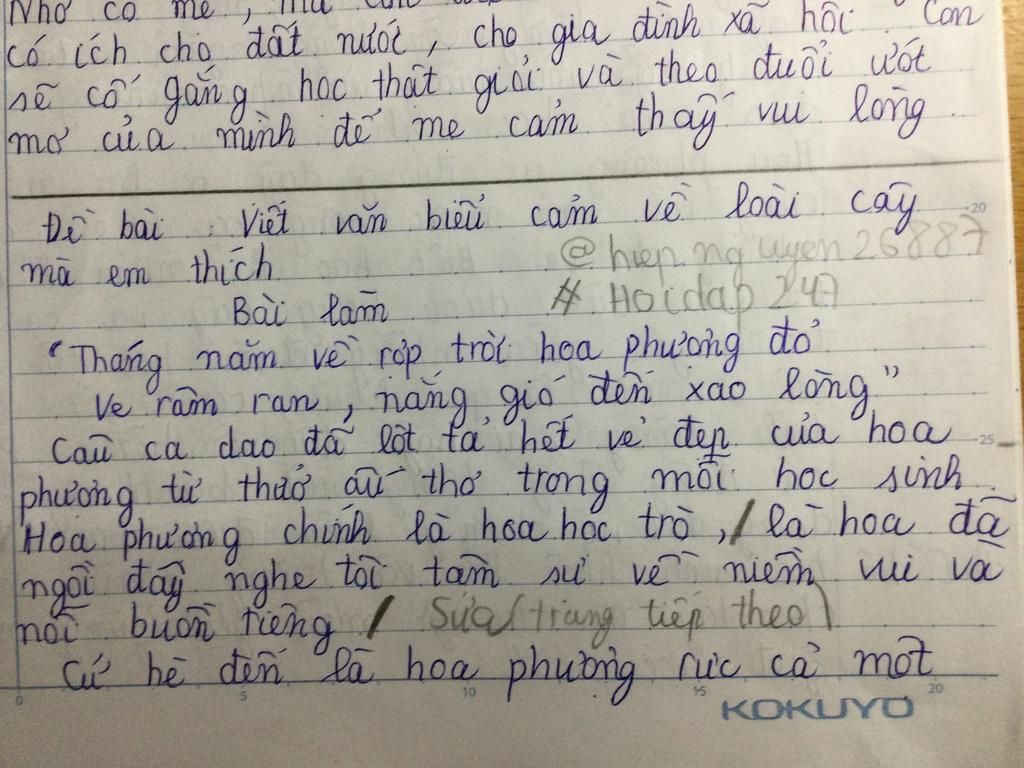 Nhờ có mẹ, mà
có ích cho đất nước, cho gia đình xã hội. Con
sẽ cố gắng học thật giỏi và theo đuổi ướt
mơ của mình để mẹ cảm thấy vui lòng.
Đề bài: Viết văn biểu cảm về loài cây 20
mà em thích @hiep.nguyen26887
Bài làm # Hoidap247
"Tháng năm về rợp trời hoa phượng đỏ
Ve râm ran, nắng gió đến xao lòng"
Câu ca dao đã lột tả hết vẻ đẹp của hoa 25
phượng từ thưở ấu thơ trong mỗi học sinh.
Hoa phượng chính là hoa học trò, / là hoa đã
ngồi đấy nghe tôi tâm sự về niềm vui và
nỗi buồn riêng / Sửa (trang tiếp theo)
Cứ hè đến là hoa phượng rực cả một
0 5 10 15 20
KOKUYO